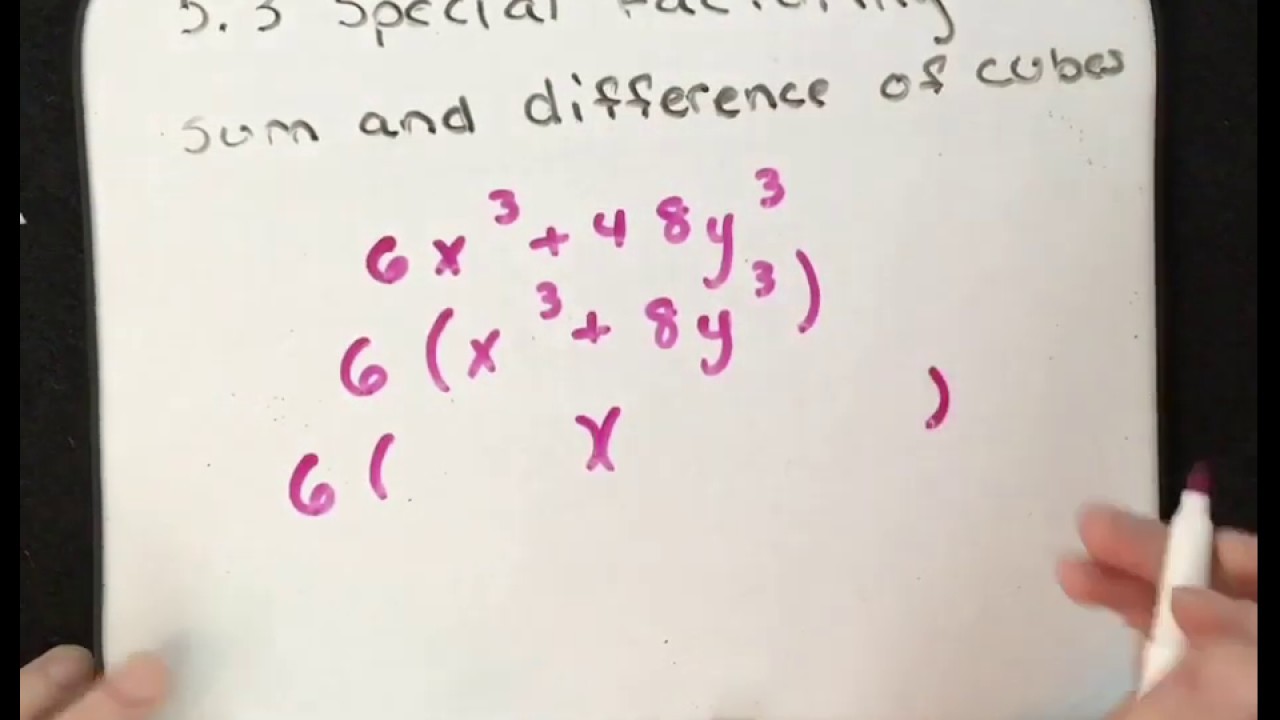 5.3 Special Factoring
sum and difference of cubes
6x³+48y³
6(x³+8y³)
6( x )